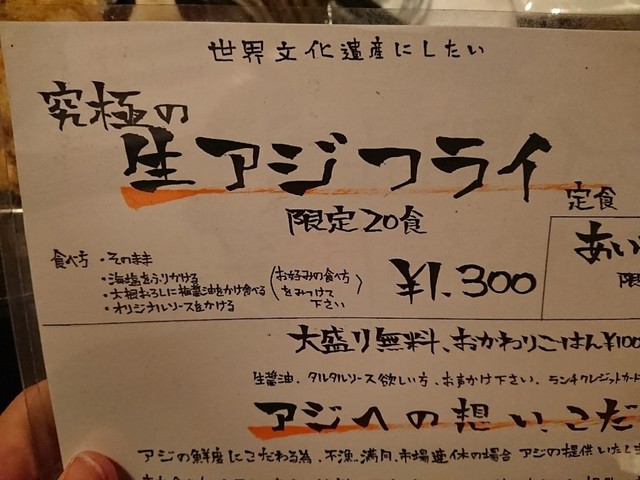 世界文化遺産にしたい
究極の
生アジフライ
定食
限定20食
あい
限
食べ方・そのまま
・海塩をふりかける
・大根おろしに梅醤油をかけ食べる
・オリジナルソースをかける
(お好みの食べ方
をみつけて
下さい)
¥1,300
大盛り無料、おかわりごはん¥100
生醤油、タルタルソース欲しい方、お声かけ下さい。ランチクレジットカード
アジへの想い、こだ
アジの鮮度にこだわる為、不漁、満月、市場連休の場合 アジの提供いたしま